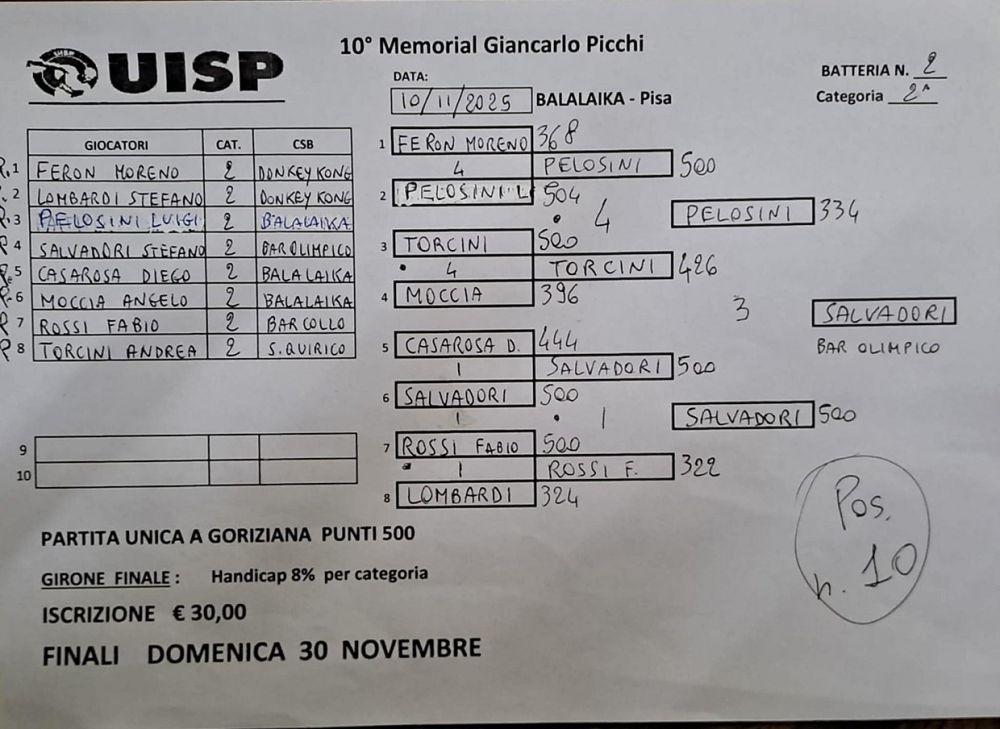 10° Memorial Giancarlo Picchi
UISP
DATA:
10/11/2025 BALALAIKA - Pisa
BATTERIA N. 2
Categoria 2^
GIOCATORI CAT. CSB
R.1 FERON MORENO 2 DONKEY KONG
R.2 LOMBARDI STEFANO 2 DONKEY KONG
R.3 PELOSINI LUIGI 2 BALALAIKA
R 4 SALVADORI STEFANO 2 BAR OLIMPICO
R.5 CASAROSA DIEGO 2 BALALAIKA
R.6 MOCCIA ANGELO 2 BALALAIKA
R 7 ROSSI FABIO 2 BAR COLLO
R 8 TORCINI ANDREA 2 S. QUIRICO
9
10
1 FERON MORENO 368
4 PELOSINI 500
2 PELOSINI L 504
4 PELOSINI 334
3 TORCINI 500
4 TORCINI 426
4 MOCCIA 396
3 SALVADORI
BAR OLIMPICO
5 CASAROSA D. 444
1 SALVADORI 500
6 SALVADORI 500
1 1 SALVADORI 500
7 ROSSI FABIO 500
1 ROSSI F. 322
8 LOMBARDI 324
Pos.
n. 10
PARTITA UNICA A GORIZIANA PUNTI 500
GIRONE FINALE : Handicap 8% per categoria
ISCRIZIONE € 30,00
FINALI DOMENICA 30 NOVEMBRE